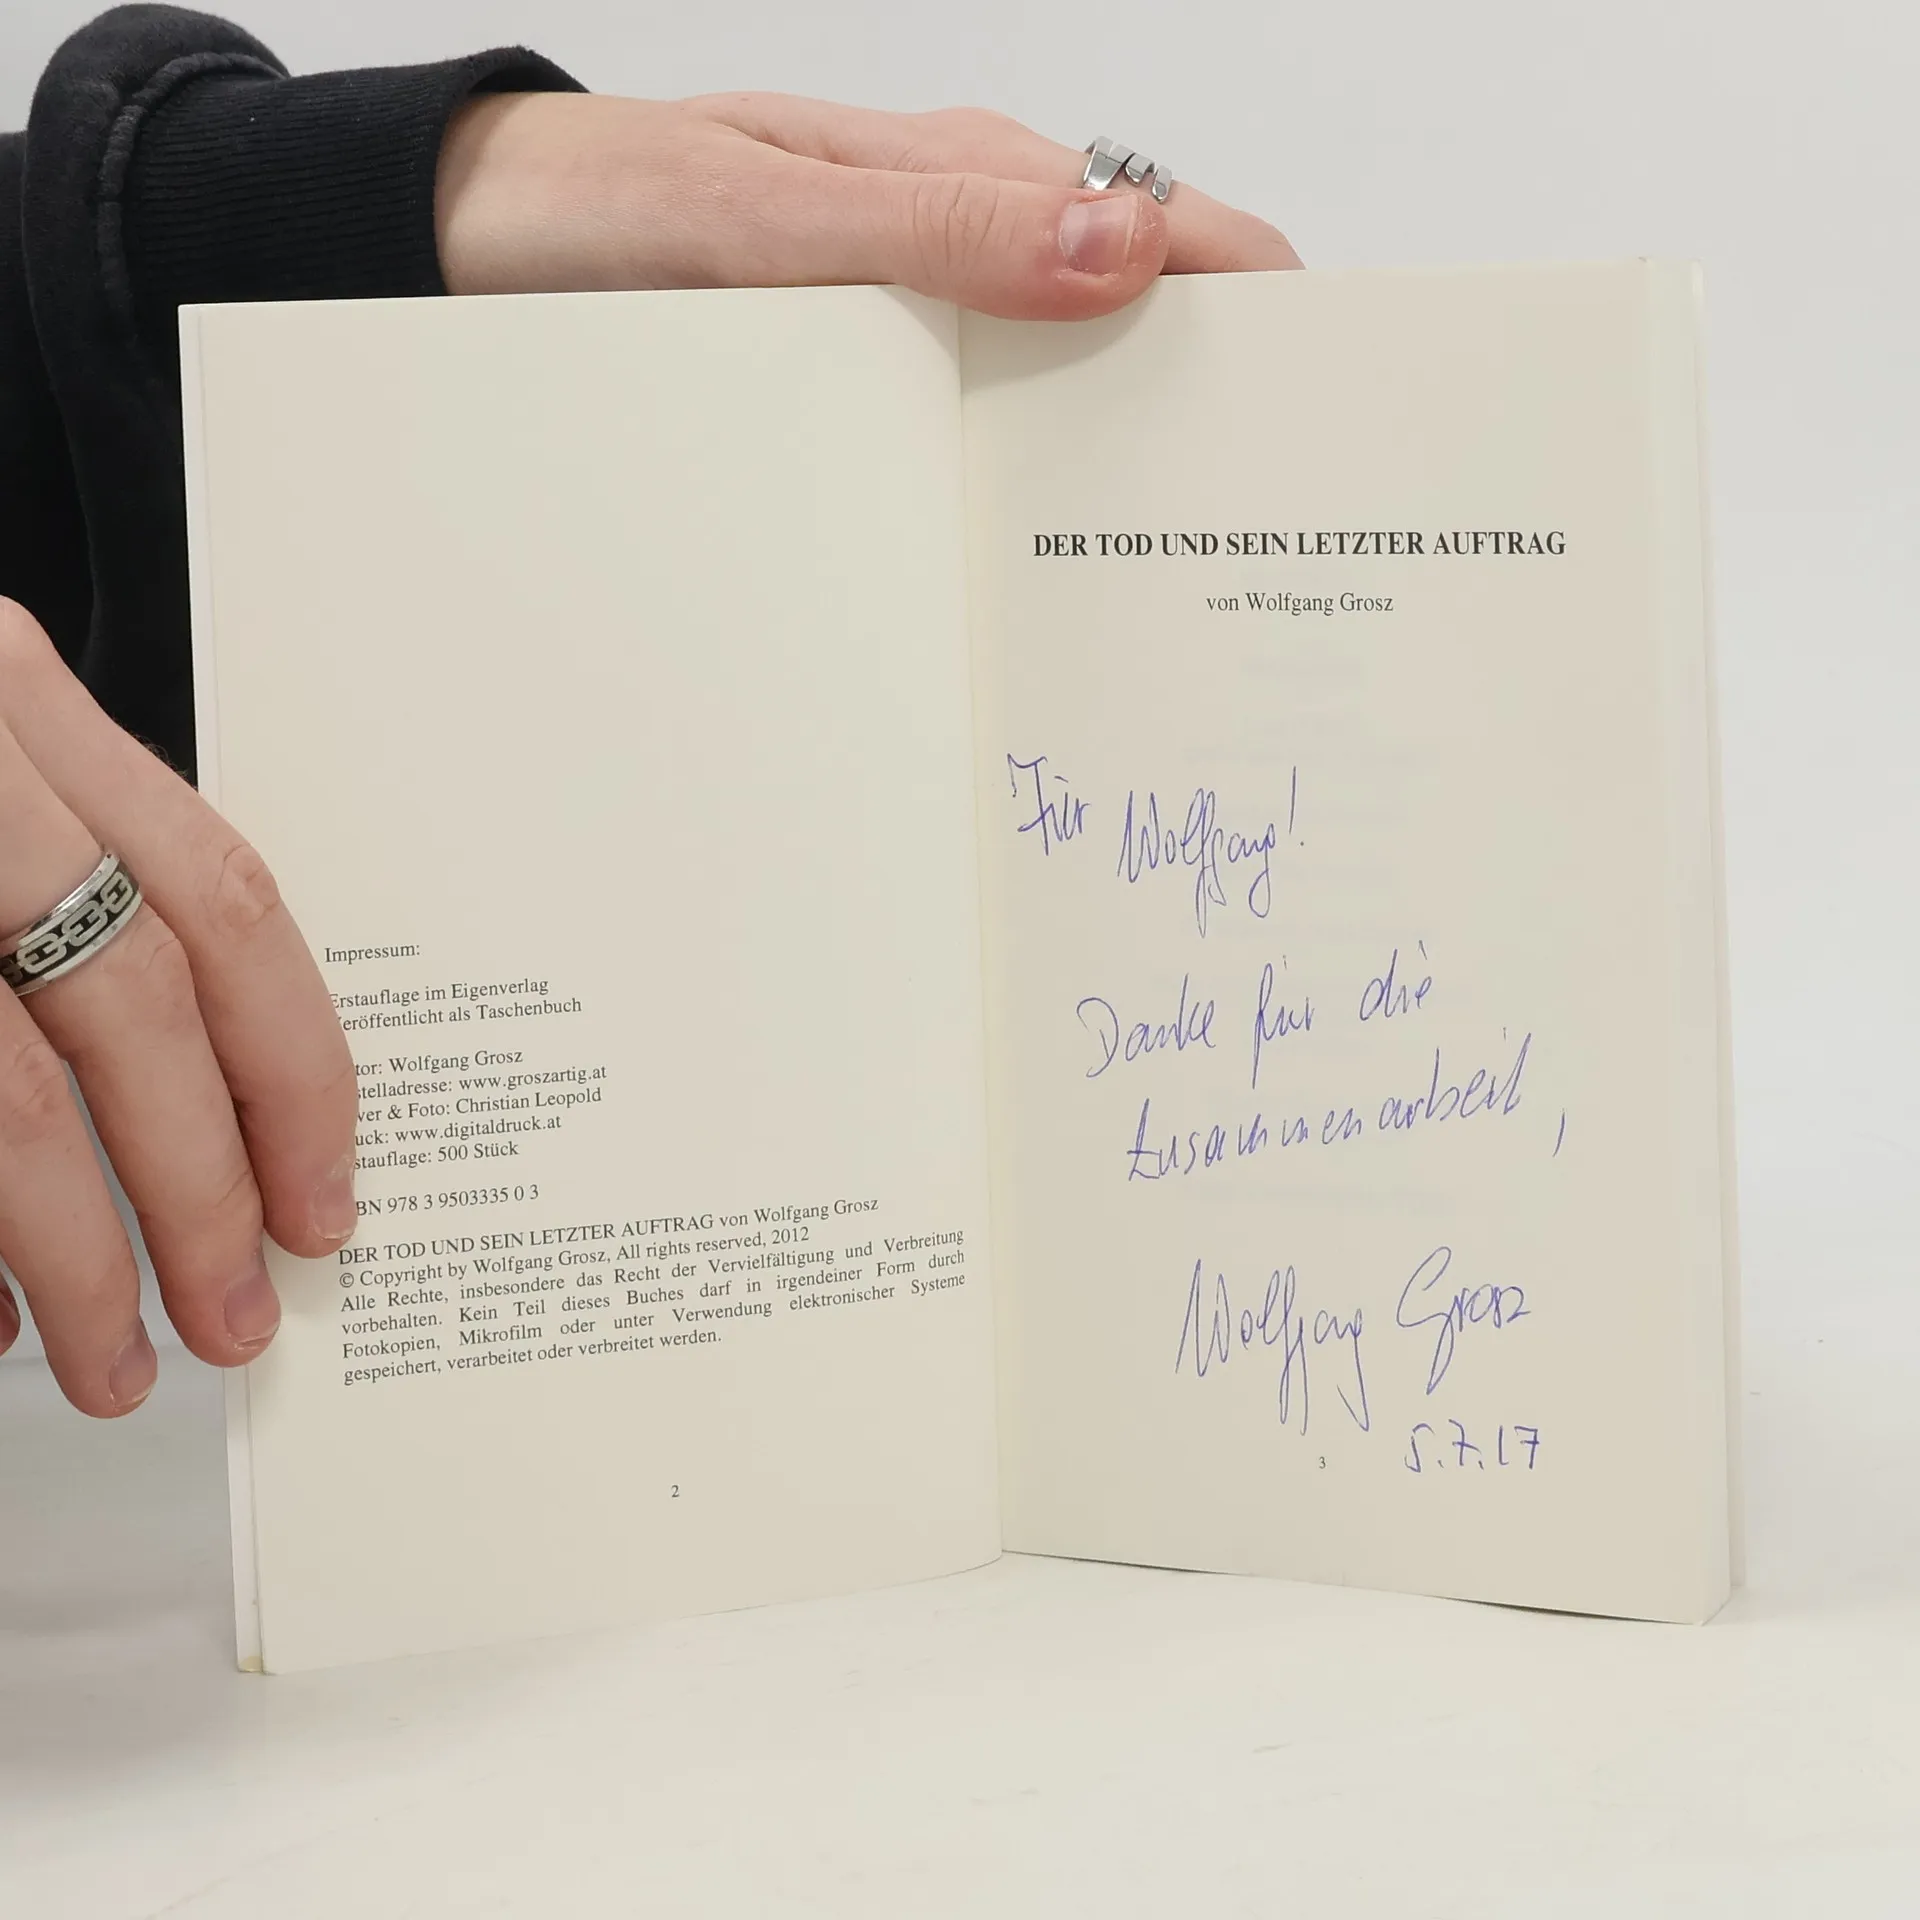 Impressum:
Erstauflage im Eigenverlag
eröffentlicht als Taschenbuch
tor: Wolfgang Grosz
stelladresse: www.groszartig.at
ver & Foto: Christian Leopold
uck: www.digitaldruck.at
stauflage: 500 Stück
BN 978 3 9503335 0 3
DER TOD UND SEIN LETZTER AUFTRAG von Wolfgang Grosz
© Copyright by Wolfgang Grosz, All rights reserved, 2012
Alle Rechte, insbesondere das Recht der Vervielfältigung und Verbreitung
vorbehalten. Kein Teil dieses Buches darf in irgendeiner Form durch
Fotokopien, Mikrofilm oder unter Verwendung elektronischer Systeme
gespeichert, verarbeitet oder verbreitet werden.
2
DER TOD UND SEIN LETZTER AUFTRAG
von Wolfgang Grosz
Für Wolfgang!
Danke für die
Zusammenarbeit,
Wolfgang Grosz
5.7.17
3